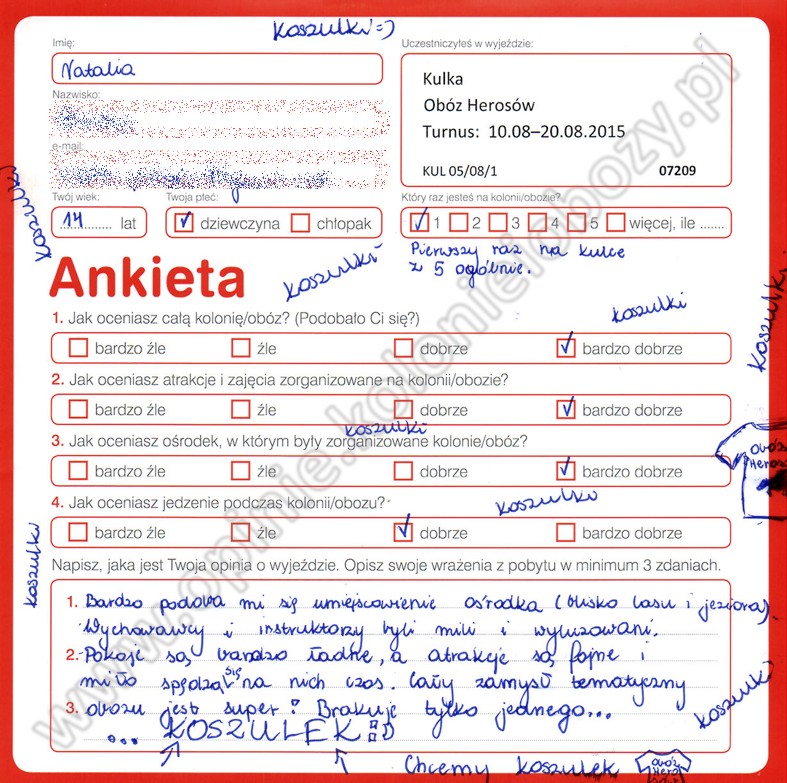 Koszulki =)
Imię:
Natalia
Uczestniczyłeś w wyjeździe:
Kulka
Obóz Herosów
Turnus: 10.08–20.08.2015
KUL 05/08/1 07209
Nazwisko:
e-mail:
Twój wiek:
14 lat
Twoja płeć:
dziewczyna chłopak
Który raz jesteś na kolonii/obozie?
1 2 3 4 5 więcej, ile .......
Pierwszy raz na kulce
z 5 ogólnie.
Koszulki
Ankieta
Koszulki
Koszulki
Koszulki
1. Jak oceniasz całą kolonię/obóz? (Podobało Ci się?)
bardzo źle źle dobrze bardzo dobrze
2. Jak oceniasz atrakcje i zajęcia zorganizowane na kolonii/obozie?
bardzo źle źle dobrze bardzo dobrze
Koszulki
3. Jak oceniasz ośrodek, w którym były zorganizowane kolonie/obóz?
bardzo źle źle dobrze bardzo dobrze
Obóz
Heros
4. Jak oceniasz jedzenie podczas kolonii/obozu?
Koszulki
bardzo źle źle dobrze bardzo dobrze
Koszulki
Napisz, jaka jest Twoja opinia o wyjeździe. Opisz swoje wrażenia z pobytu w minimum 3 zdaniach.
1. Bardzo podoba mi się umiejscowienie ośrodka (blisko lasu i jeziora).
Wychowawcy i instruktorzy byli mili i wyluzowani.
2. Pokoje są bardzo ładne, a atrakcje są fajne i
miło spędza się na nich czas. Cały zamysł tematyczny
3. obozu jest super! Brakuje tylko jednego...
... KOSZULEK :D
Koszulki
Chcemy koszulek
Obóz
Hero
www.opinie.kolonieiobozy.pl